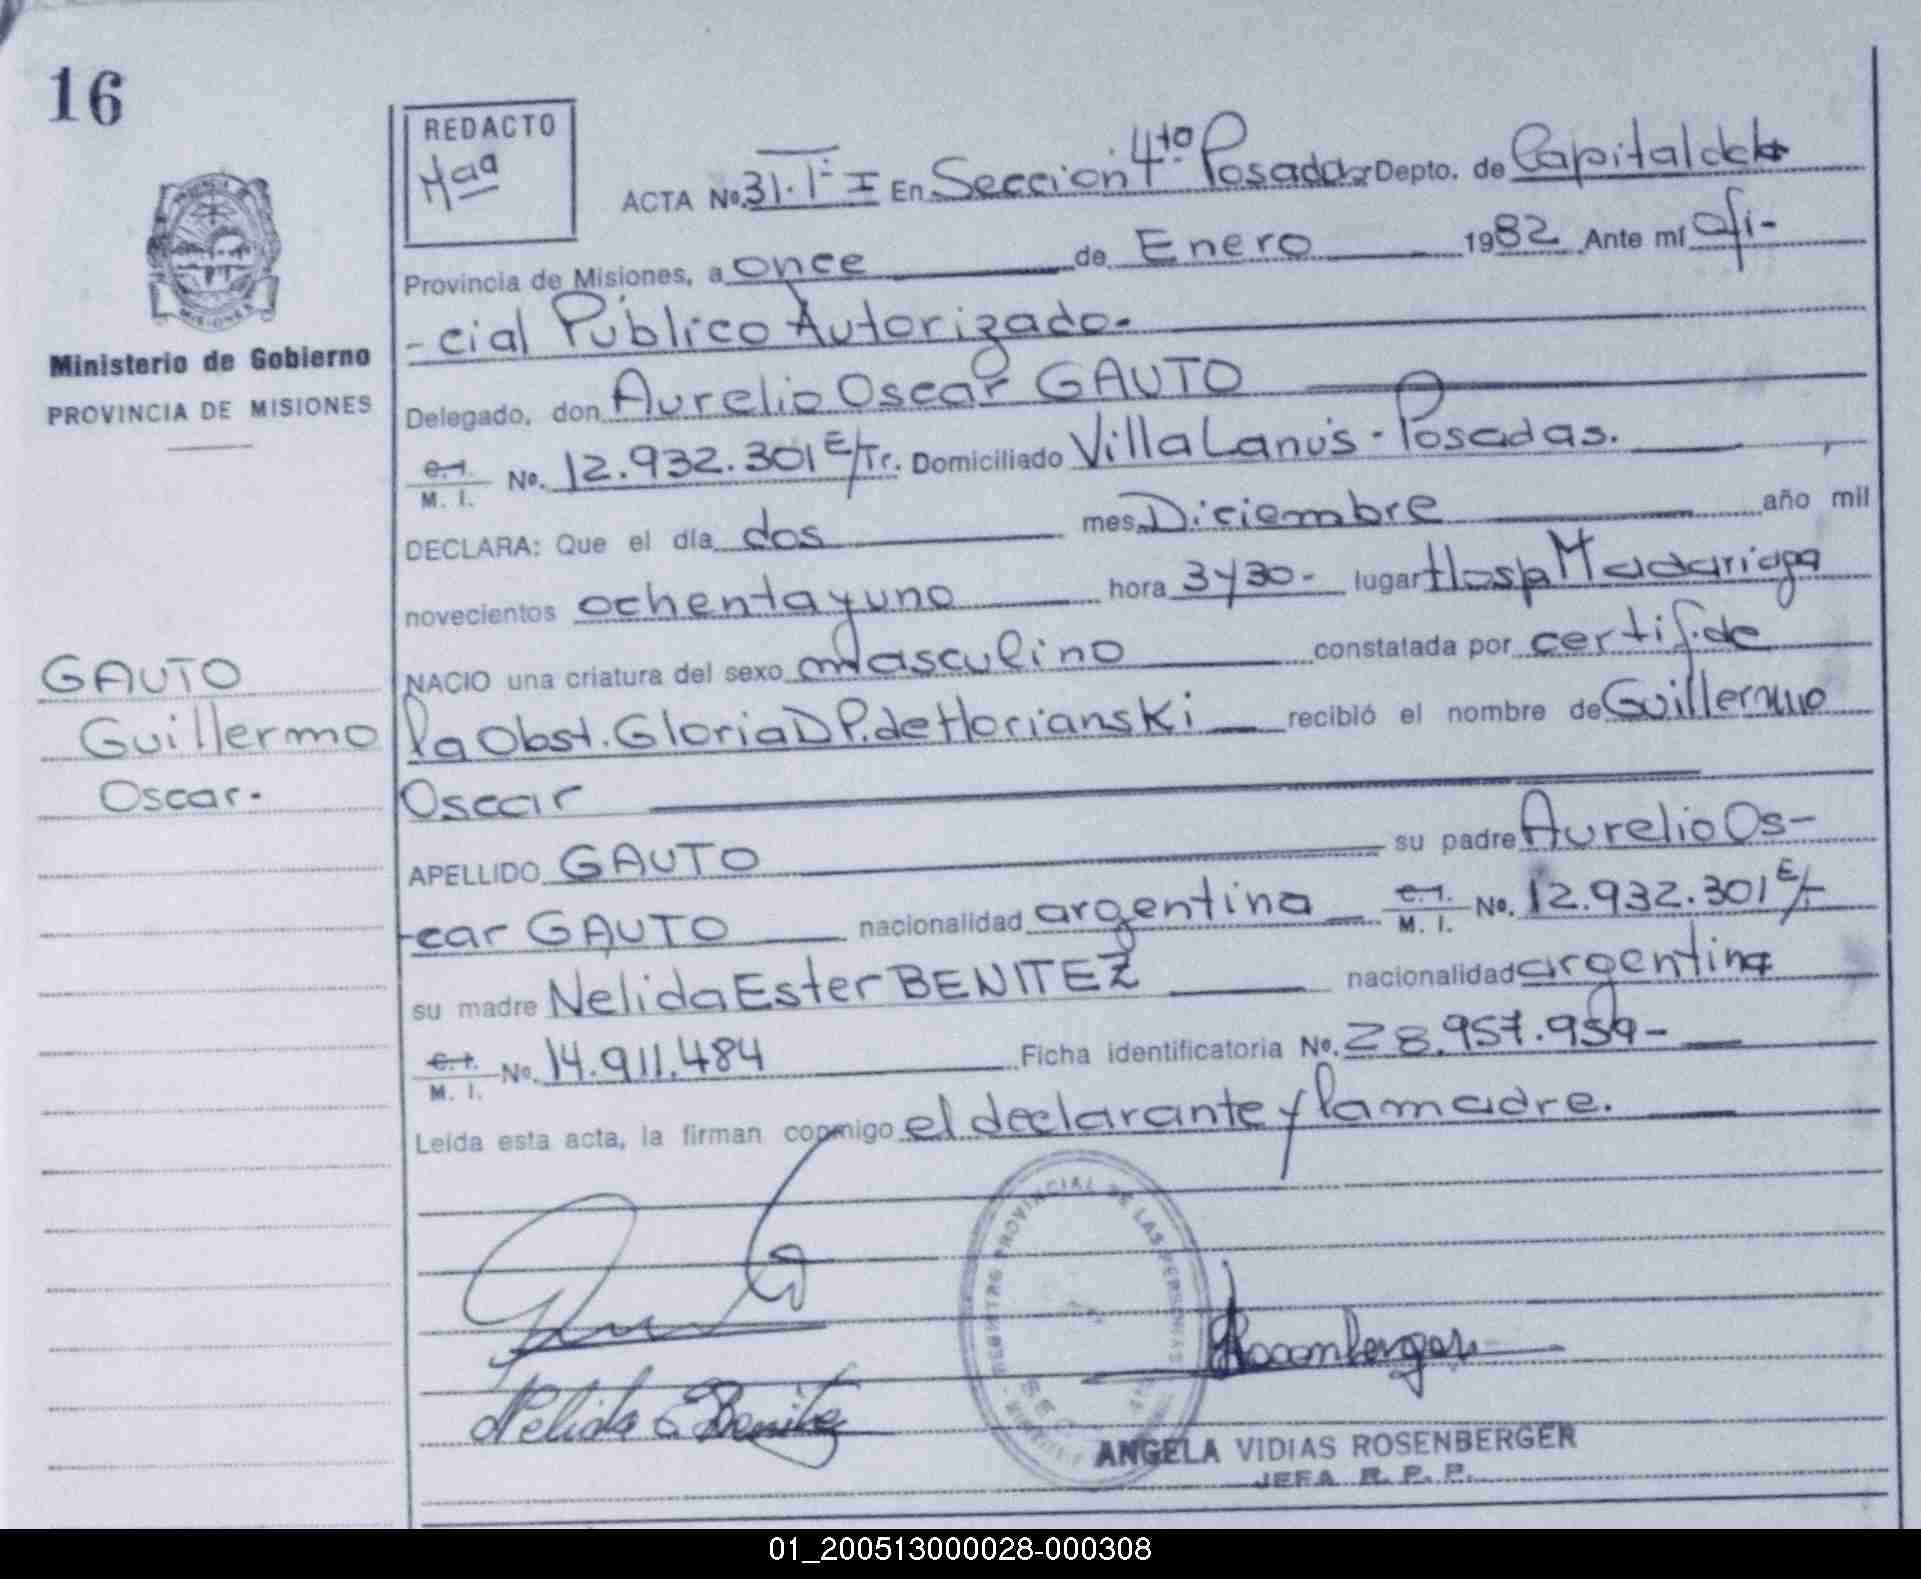 16
REDACTO
ACTA No. 31. Tº I En Sección 4to Posadas Depto. de Capital de la
Provincia de Misiones, a once de Enero 1982 Ante mí ofi-
-cial Público Autorizado.
Ministerio de Gobierno
PROVINCIA DE MISIONES
Delegado, don Aurelio Oscar GAUTO
M. I. No. 12.932.301 E/Tr. Domiciliado Villa Lanús - Posadas.
DECLARA: Que el día dos mes Diciembre año mil
novecientos ochenta y uno hora 3 y 30 - lugar Hosp Madariaga
NACIO una criatura del sexo masculino constatada por certif. de
la Obst. Gloria D P. de Horianski recibió el nombre de Guillermo
Oscar
GAUTO
Guillermo
Oscar.
APELLIDO GAUTO su padre Aurelio Os-
-car GAUTO nacionalidad argentina M. I. No. 12.932.301 E/
su madre Nelida Ester BENITEZ nacionalidad argentina
M. I. No. 14.911.484 Ficha identificatoria No. 28.957.959 -
Leída esta acta, la firman conmigo el declarante y la madre.
REGISTRO PROVINCIAL DE LAS PERSONAS
Nelida E. Benitez
Rosenberger
ANGELA VIDIAS ROSENBERGER
JEFA R. P. P.
01_200513000028-000308